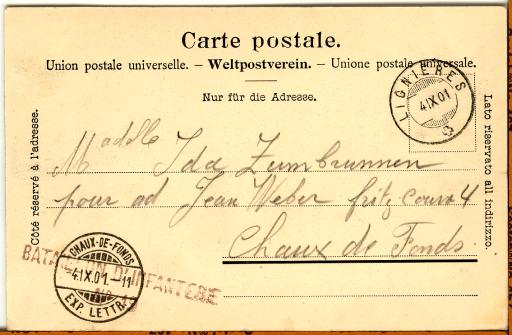 Carte postale.
Union postale universelle. – Weltpostverein. – Unione postale universale.
Nur für die Adresse.
LIGNIÈRES
4.IX.01
Côté réservé à l'adresse.
Lato riservato all indirizzo.
Madelle Ida Zumbrunnen
pour ad Jean Weber fritz Courv. 4
Chaux de Fonds
BATAILLON D'INFANTERIE
No
CHAUX-DE-FONDS
4.IX.01.-11
EXP. LETTR.